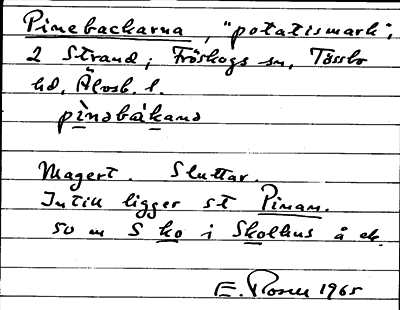 Pinebackarna, "potatismark",
2 Strand, Fröskogs sn, Tössbo
hd, Älvsb. l.
pìnəbàkanə
Magert. Sluttar.
Intill ligger st Pinan.
50 m S ko i Skolhus å ek.
E. Rosen 1965